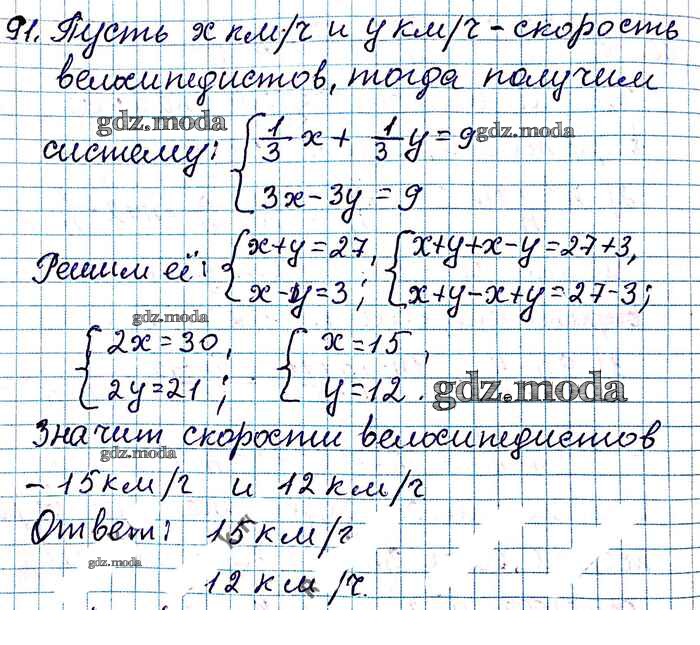 91. Пусть x км/ч и y км/ч - скорость
велосипедистов, тогда получим
gdz.moda
систему: { 1/3 x + 1/3 y = 9 gdz.moda
3x - 3y = 9
Решим её: { x+y=27, { x+y+x-y=27+3,
x-y=3; x+y-x+y=27-3;
gdz.moda
{ 2x=30, { x=15,
2y=21; y=12. gdz.moda
Значит скорости велосипедистов
gdz.moda
- 15 км/г и 12 км/г
Ответ: 15 км/г
gdz.moda
12 км/ч.